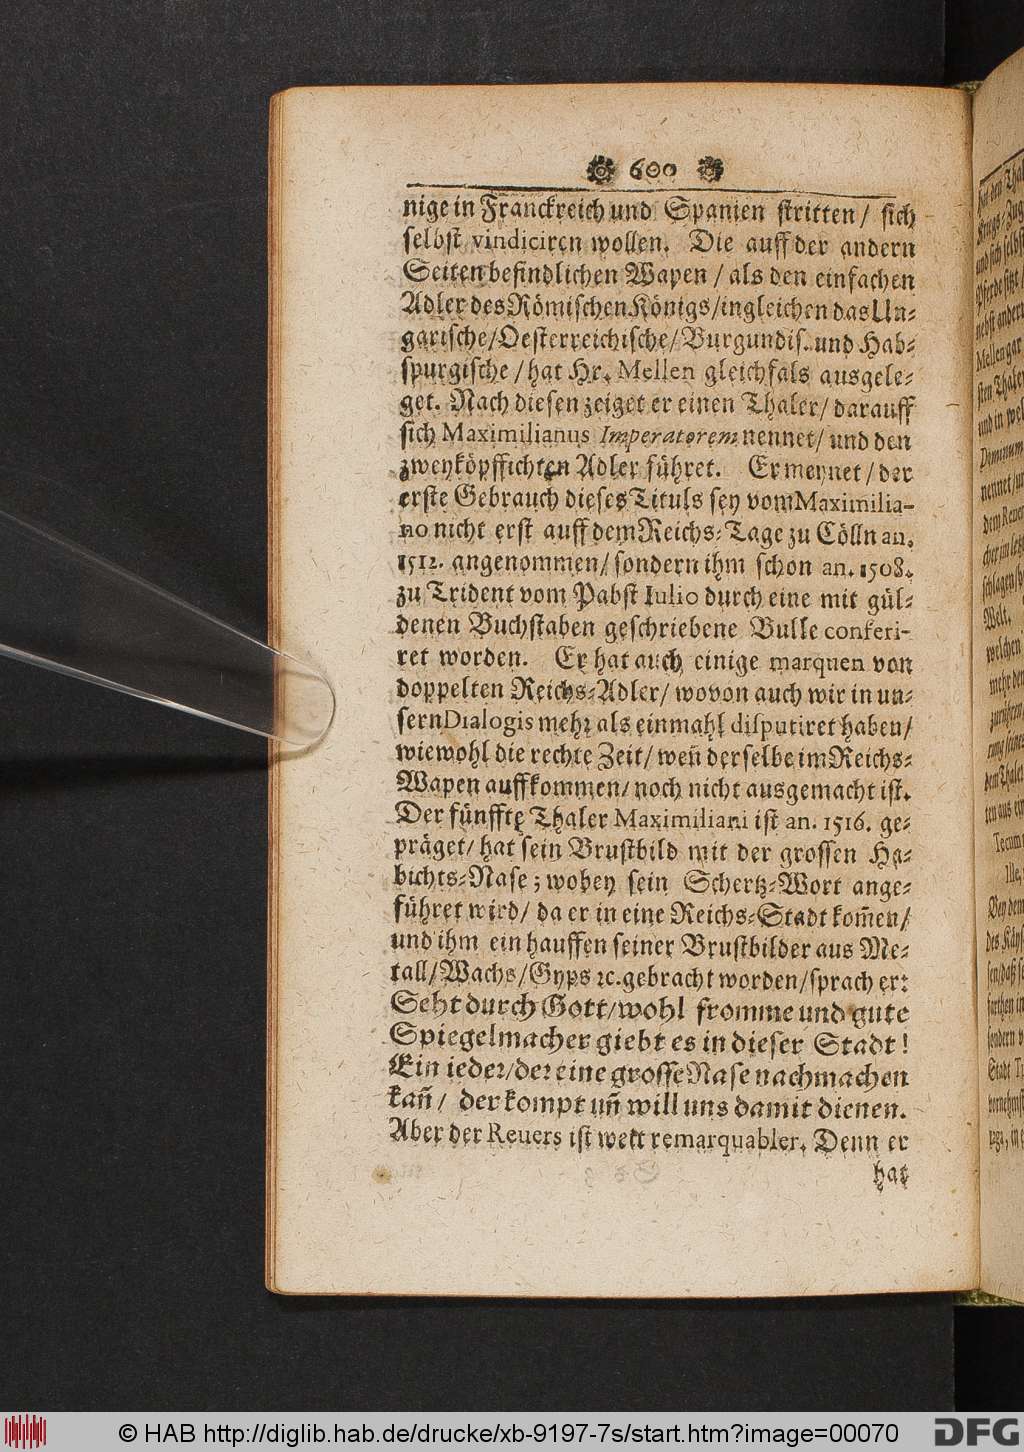 600
nige in Franckreich und Spanien stritten / sich
selbst vindiciren wollen. Die auff der andern
Seiten befindlichen Wapen / als den einfachen
Adler des Römischen Königs / ingleichen das Un-
garische / Oesterreichische / Burgundis. und Hab-
spurgische / hat Hr. Mellen gleichfals ausgele-
get. Nach diesen zeiget er einen Thaler / darauff
sich Maximilianus Imperatorem nennet / und den
zweyköpffichten Adler führet. Er meynet / der
erste Gebrauch dieses Tituls sey vom Maximilia-
no nicht erst auff dem Reichs-Tage zu Cölln an.
1512. angenommen / sondern ihm schon an. 1508.
zu Trident vom Pabst Iulio durch eine mit gül-
denen Buchstaben geschriebene Bulle conferi-
ret worden. Er hat auch einige marquen von
doppelten Reichs-Adler / wovon auch wir in un-
sern Dialogis mehr als einmahl disputiret haben /
wiewohl die rechte Zeit / weñ derselbe im Reichs-
Wapen auffkommen / noch nicht ausgemacht ist.
Der fünffte Thaler Maximiliani ist an. 1516. ge-
präget / hat sein Brustbild mit der grossen Ha-
bichts-Nase ; wobey sein Schertz-Wort ange-
führet wird / da er in eine Reichs-Stadt kom̃en /
und ihm ein hauffen seiner Brustbilder aus Me-
tall / Wachs / Gyps ꝛc. gebracht worden / sprach er:
Seht durch Gott / wohl fromme und gute
Spiegelmacher giebt es in dieser Stadt !
Ein ieder / der eine grosse Nase nachmachen
kañ / der kompt uñ will uns damit dienen.
Aber der Reuers ist weit remarquabler. Denn er
hat
© HAB http://diglib.hab.de/drucke/xb-9197-7s/start.htm?image=00070
DFG